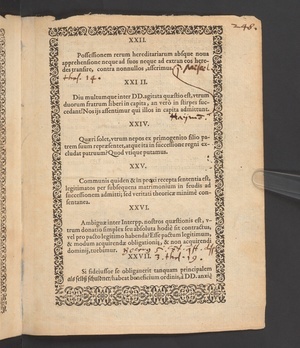 248.
XXII.
Possessionem rerum hereditariarum absque noua
apprehensione neque ad suos neque ad extraneos here-
des transire, contra nonnullos, asserimus.
thes. 14.
XXIII.
Diu multumque inter DD. agitata quæstio est, vtrum
duorum fratrum liberi in capita, an verò in stirpes suc-
cedant? Nos ijs assentimur qui illos in capita admittunt.
XXIV.
Quæri solet, vtrum nepos ex primogenito filio pa-
trem suum repræsentet, atque ita in successione regni ex-
cludat patruum? Quod vtique putamus.
XXV.
Communis quidem & in praxi recepta sententia est,
legitimatos per subsequens matrimonium in feudis ad
successionem admitti; sed veritati theoricæ minimè con-
sentanea.
XXVI.
Ambiguæ inter Interpp. nostros quæstionis est, v-
trum donatio simplex seu absoluta hodiè sit contractus,
vel pro pacto legitimo habenda? Esse pactum legitimum,
& modum acquirendæ obligationis, & non acquirendi
dominij, statuimus.
XXVII. 3. thes. 19.
Si fideiussor se obligauerit tanquam principalem
als selbst schuldner: habeat beneficium ordinis, à DD. anxiè